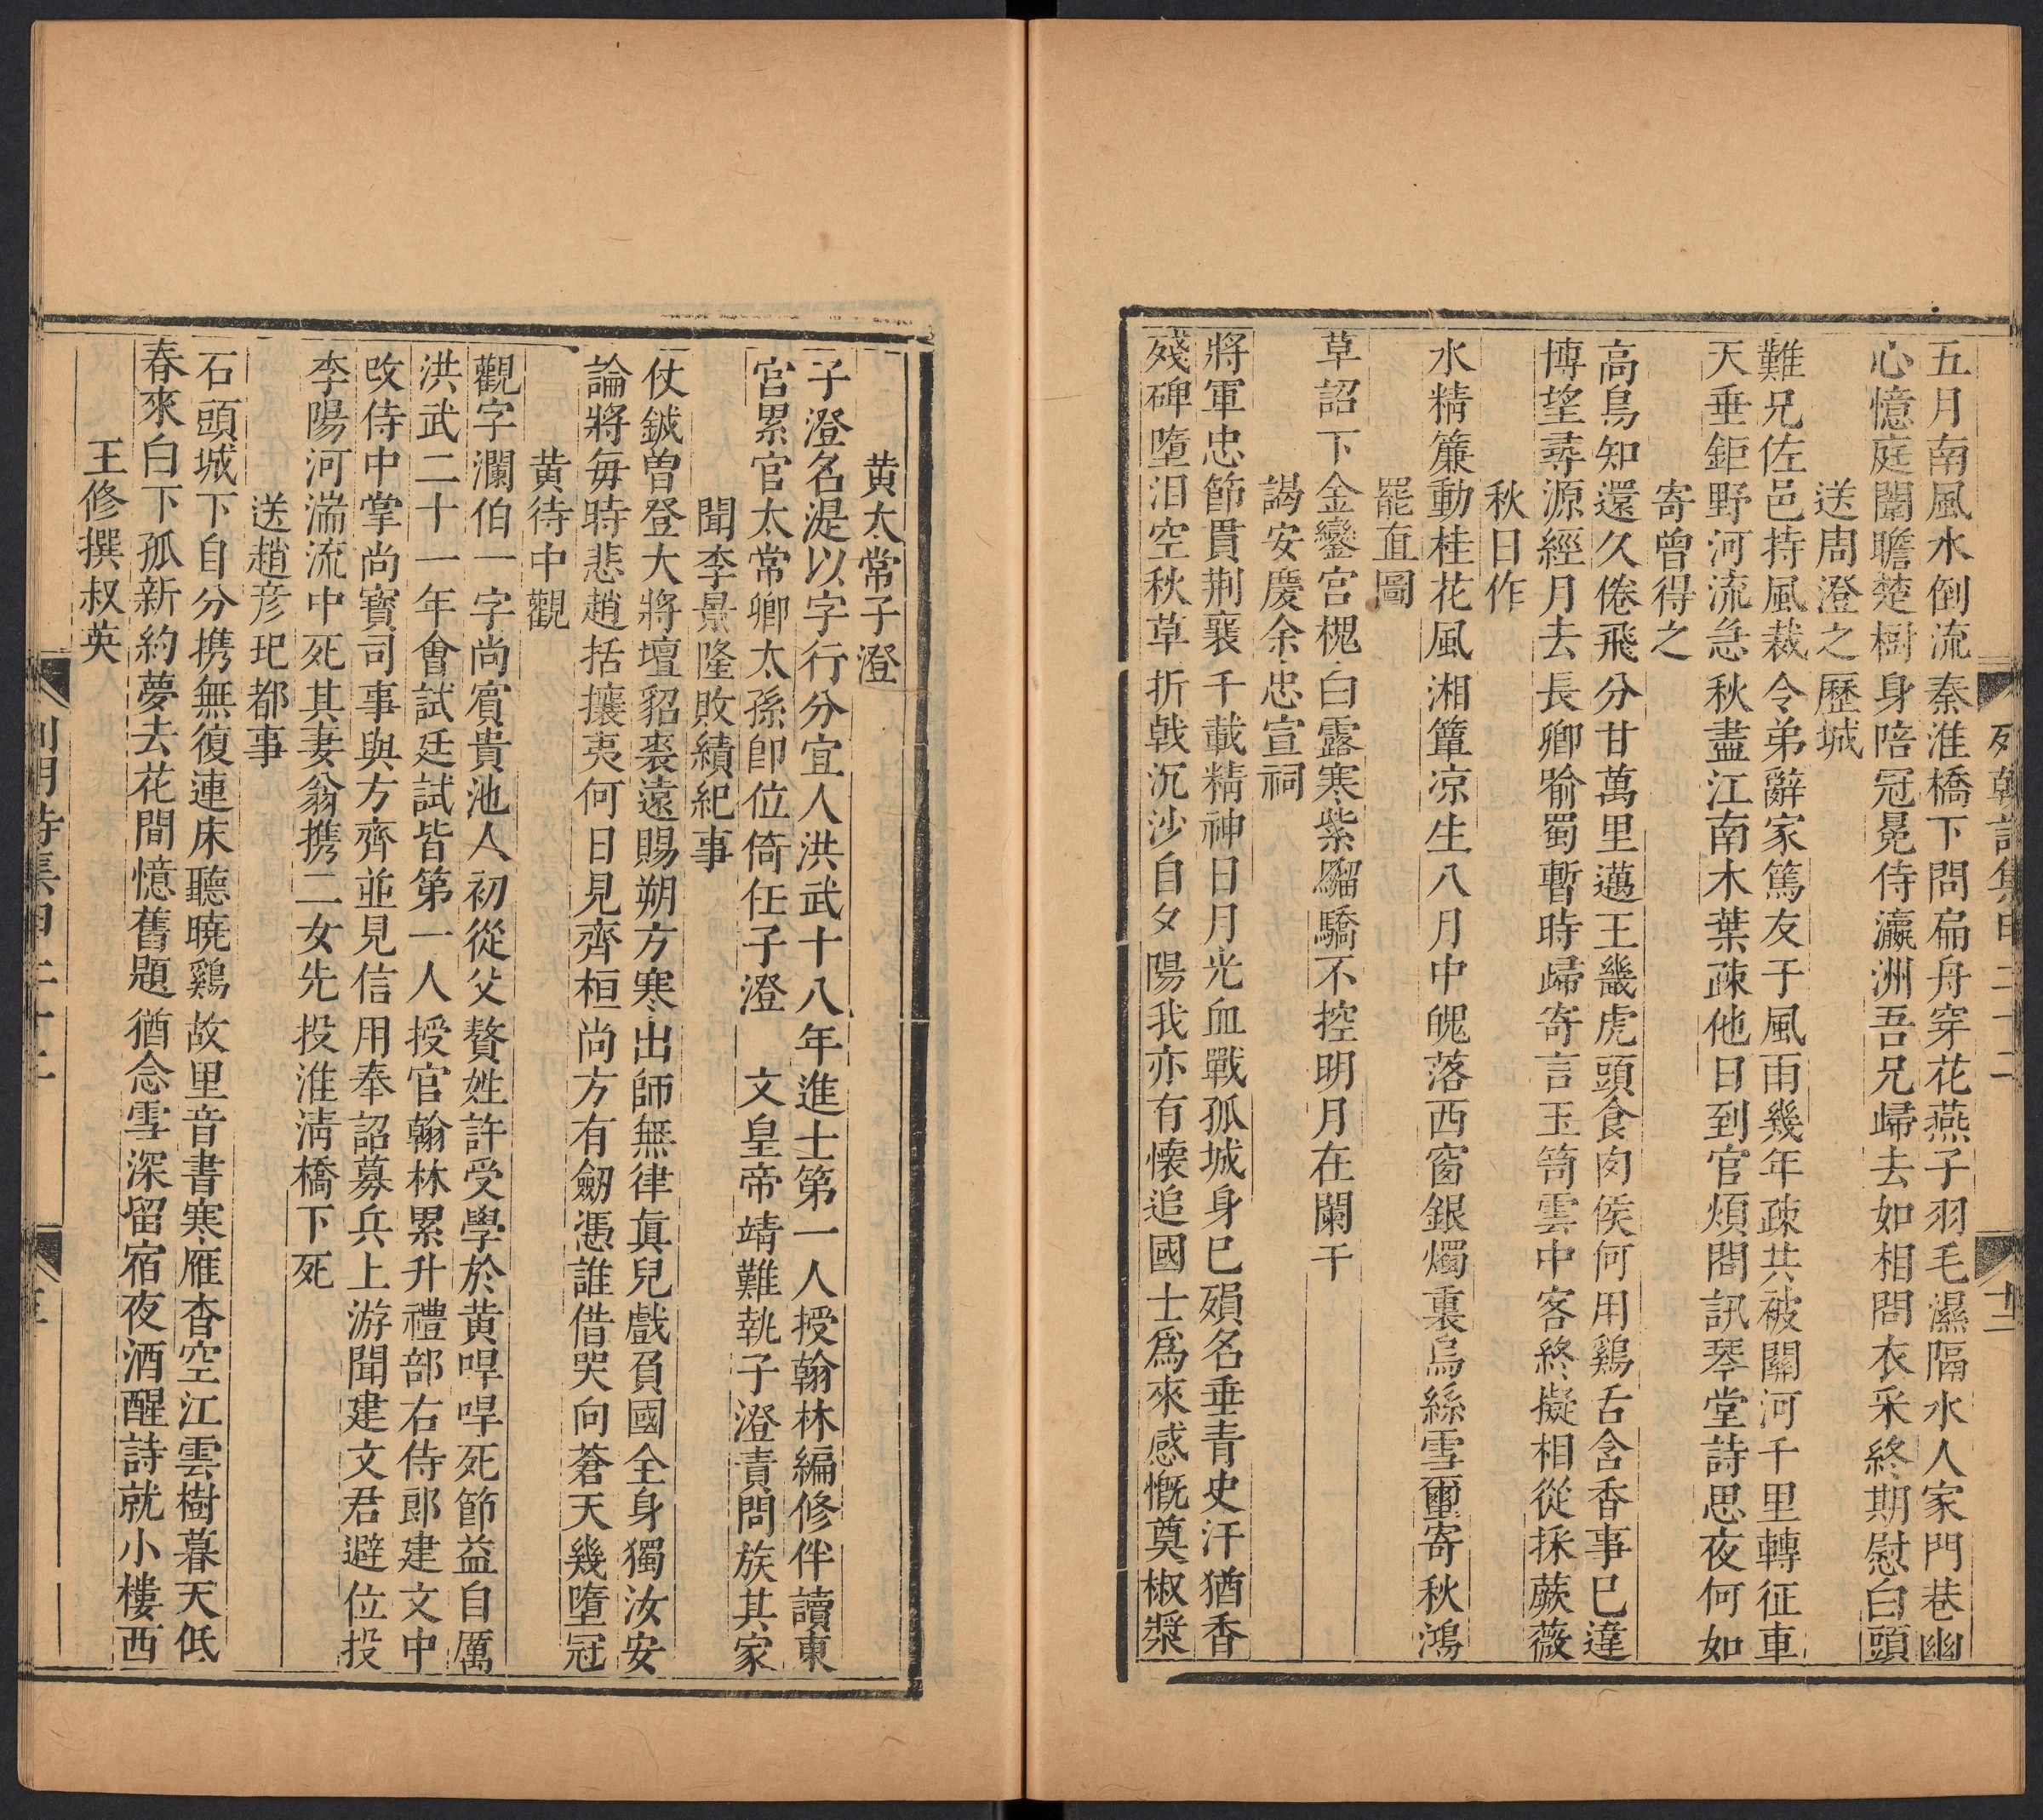 五月南風水倒流秦淮橋下問扁舟穿花燕子羽毛濕隔水人家門巷幽
心憶庭闈瞻楚樹身陪冠冕侍瀛洲吾兄歸去如相問衣采終期慰白頭
送周澄之歷城
難兄佐邑持風裁令弟辭家篤友于風雨幾年疎共被關河千里轉征車
天垂鉅野河流急秋盡江南木葉疎他日到官煩問訊琴堂詩思夜何如
寄曾得之
高鳥知還久倦飛分甘萬里邁王畿虎頭食肉侯何用鷄舌含香事已違
博望尋源經月去長卿喻蜀暫時歸寄言玉笥雲中客終擬相從採蕨薇
秋日作
水精簾動桂花風湘簟凉生八月中魄落西窗銀燭裏烏絲雪璽寄秋鴻
罷直圖
草詔下金鑾宮槐白露寒紫騮驕不控明月在闌干
謁安慶余忠宣祠
將軍忠節貫荆襄千載精神日月光血戰孤城身已殞名垂青史汗猶香
殘碑墮泪空秋草折戟沉沙自夕陽我亦有懷追國士爲來感慨奠椒漿
列朝詩集甲二十二
十二
黄太常子澄
子澄名湜以字行分宜人洪武十八年進士第一人授翰林編修伴讀東
宮累官太常卿太孫卽位倚任子澄　文皇帝靖難執子澄責問族其家
聞李景隆敗績紀事
仗鉞曽登大將壇貂裘遠賜朔方寒出師無律眞兒戲負國全身獨汝安
論將每時悲趙括攘夷何日見齊桓尚方有劒憑誰借哭向蒼天幾墮冠
黄待中觀
觀字瀾伯一字尚賓貴池人初從父贅姓許受學於黄㖫㖫死節益自厲
洪武二十一年會試廷試皆第一人授官翰林累升禮部右侍郎建文中
改侍中掌尚寳司事與方齊並見信用奉詔募兵上游聞建文君避位投
李陽河湍流中死其妻翁携二女先投淮淸橋下死
送趙彦玘都事
石頭城下自分携無復連床聽曉鷄故里音書寒雁杳空江雲樹暮天低
春來白下孤新約夢去花間憶舊題猶念雪深留宿夜酒醒詩就小樓西
王修撰叔英